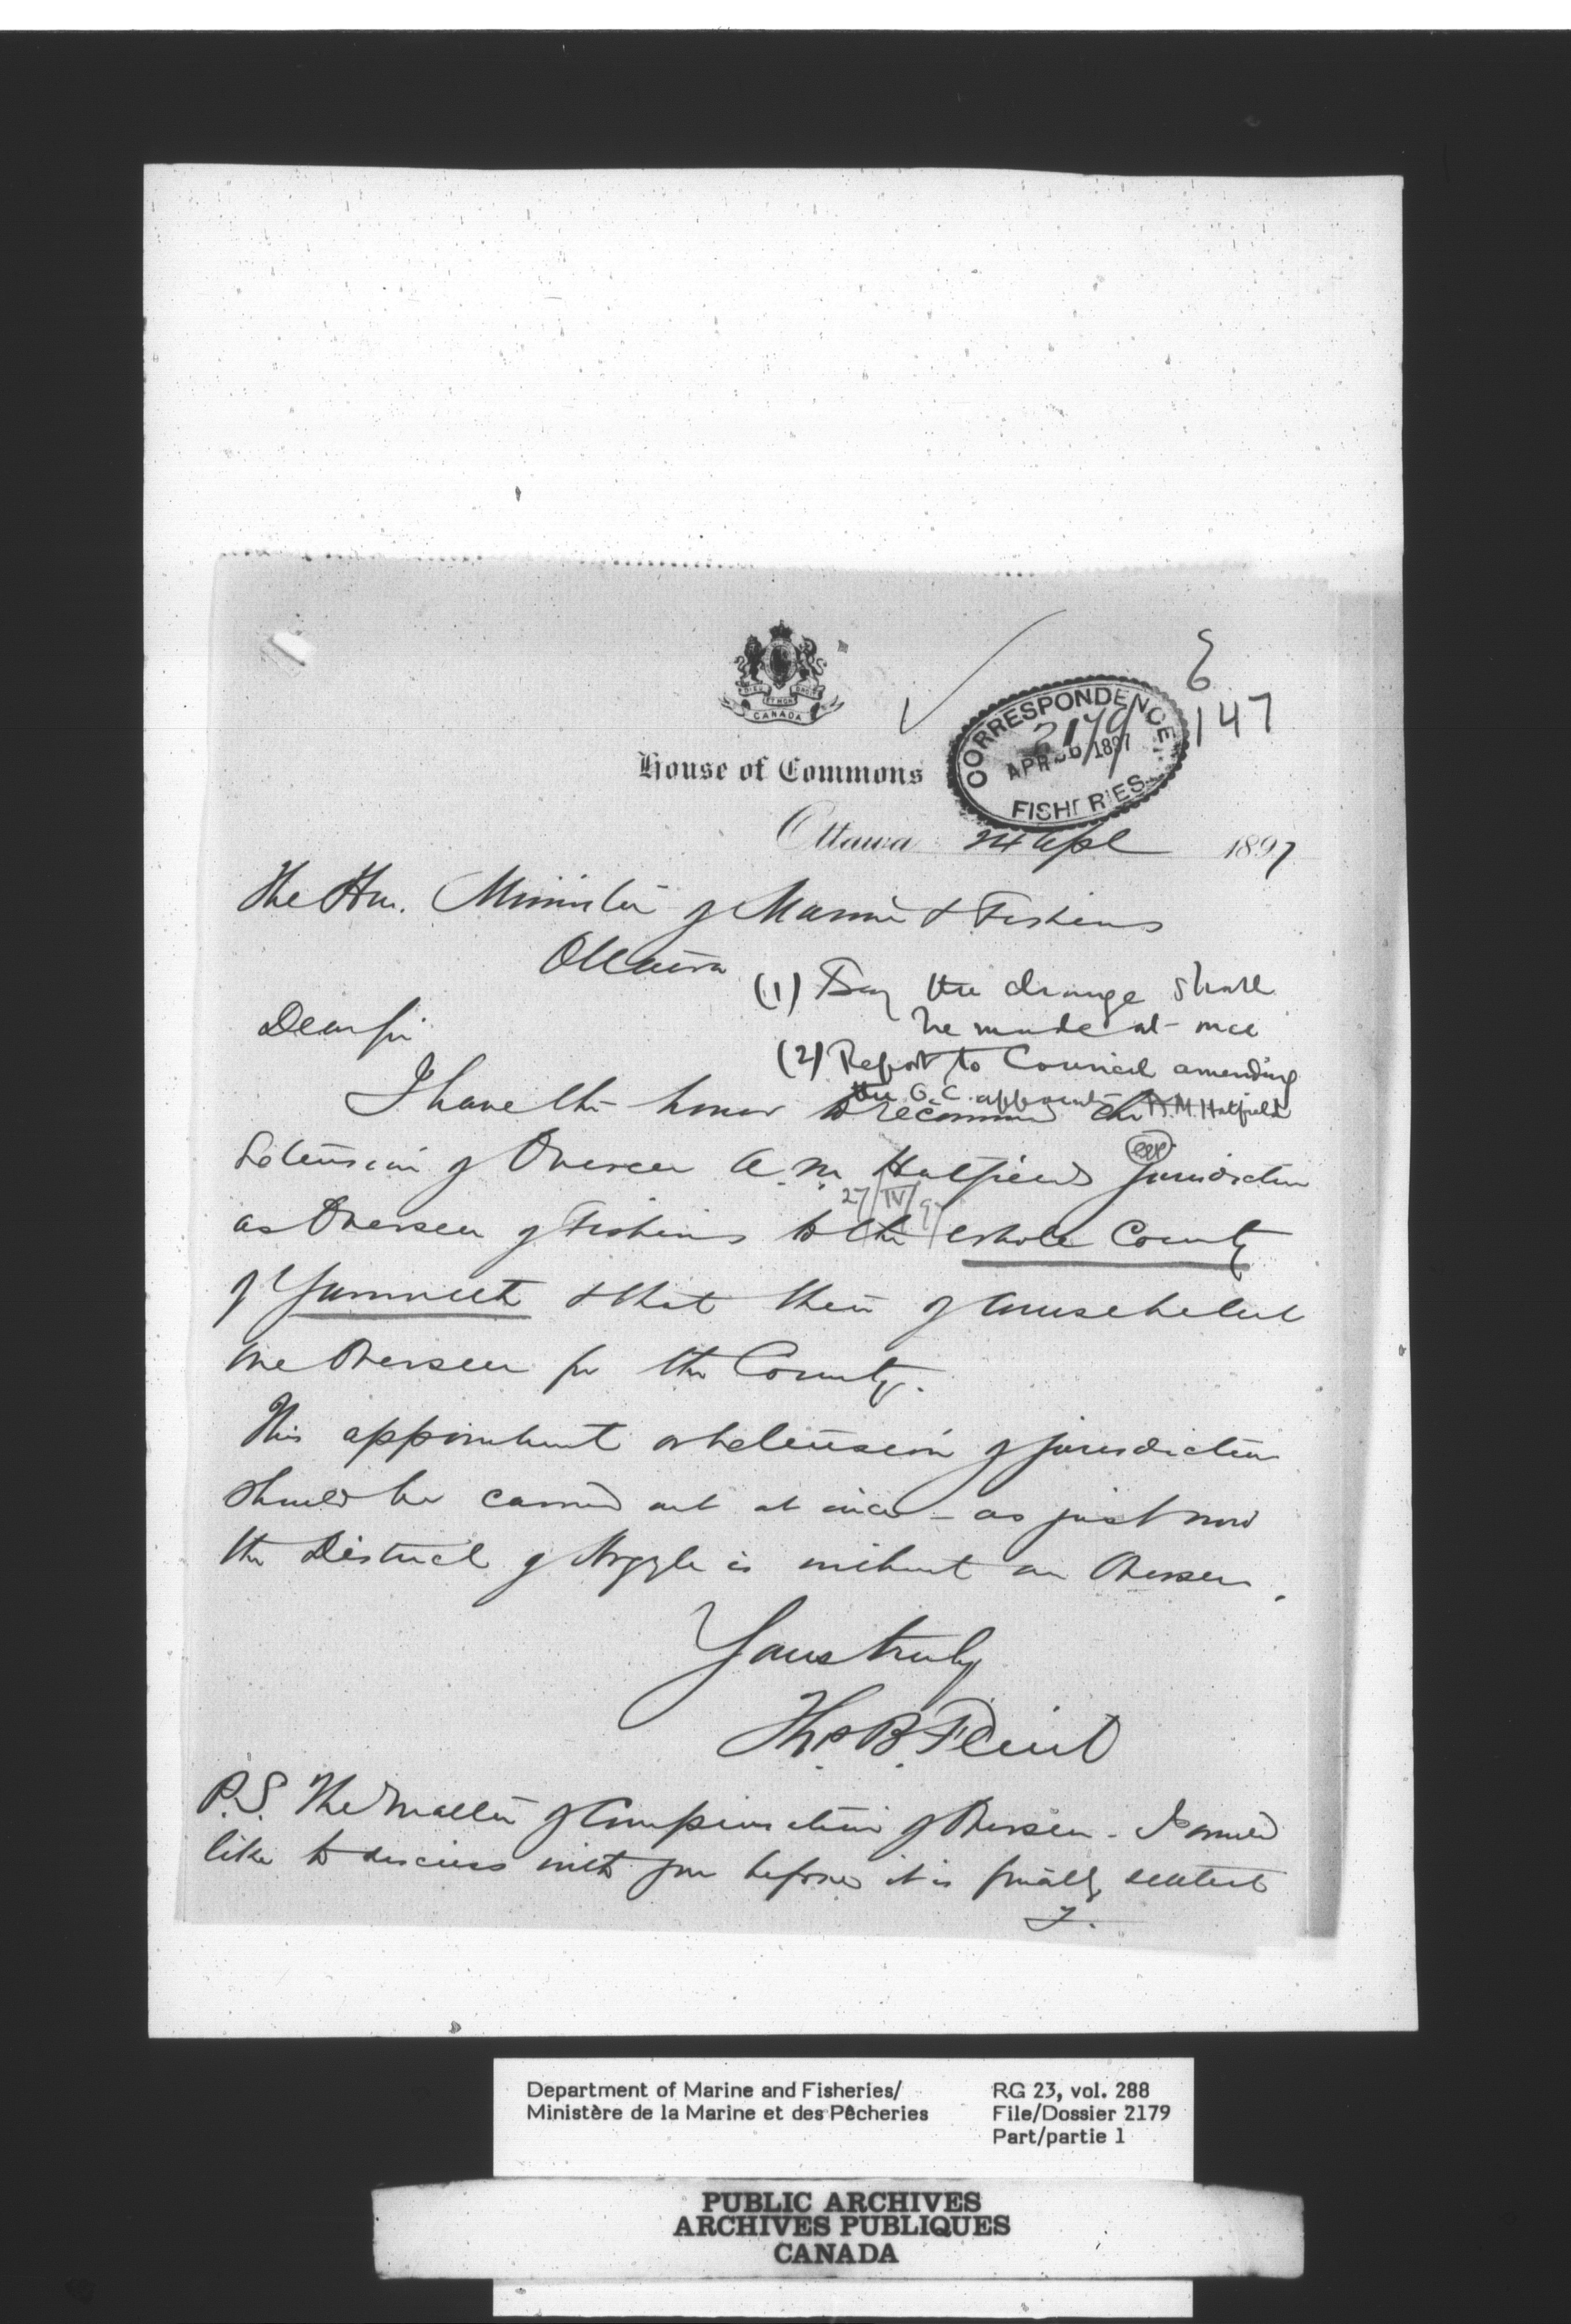 DIEU ET MON DROIT
CANADA
House of Commons
E
147
CORRESPONDENCE
2179
APR 26 1897
FISHERIES
Ottawa 24 Apl 1897
The Hon. Minister of Marine & Fisheries
Ottawa
(1) Say the change shall
be made at once
Dear Sir
(2) Report to Council amending
the O.C. appoint A.M. Hatfield
I have the honor to recommend the
Extension of Overseer A.M. Hatfield's jurisdiction
27/IV/97
as Overseer of Fisheries to the whole County
of Yarmouth & that there of course be but
one Overseer for the County.
This appointment or extension of jurisdiction
should be carried out at once - as just now
the District of Argyle is without an Overseer.
Yours truly
Thos B. Flint
P.S. The matter of Compensation of Overseer - I would
like to discuss with you before it is finally settled
F.
Department of Marine and Fisheries/
Ministère de la Marine et des Pêcheries
RG 23, vol. 288
File/Dossier 2179
Part/partie 1
PUBLIC ARCHIVES
ARCHIVES PUBLIQUES
CANADA